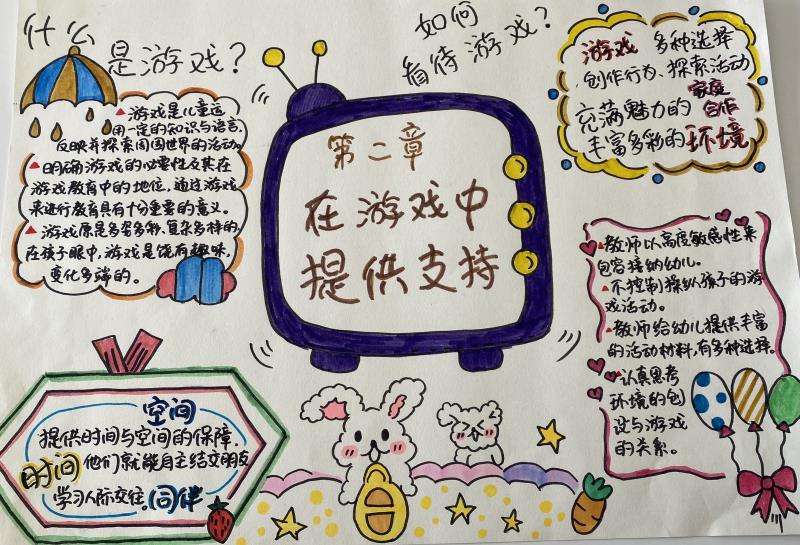 什么
是游戏?
▲游戏是儿童运
用一定的知识与语言,
反映并探索周围世界的活动。
▲明确游戏的必要性及其在
游戏教育中的地位,通过游戏
来进行教育具有十分重要的意义。
▲游戏原是多姿多称、复杂多样的,
在孩子眼中,游戏是饶有趣味,
变化多端的。
如何
看待游戏?
游戏 多种选择
创作行为、探索活动
充满魅力的 家庭合作
丰富多彩的环境
第二章
在游戏中
提供支持
▲教师以高度敏感性来
包容接纳幼儿。
▲不控制操纵孩子的游
戏活动。
▲教师给幼儿提供丰富
的活动材料,有多种选择。
▲认真思考
环境的创
设与游戏
的关系。
空间
提供时间与空间的保障,
时间 他们就能自主结交朋友
学习人际交往。同伴